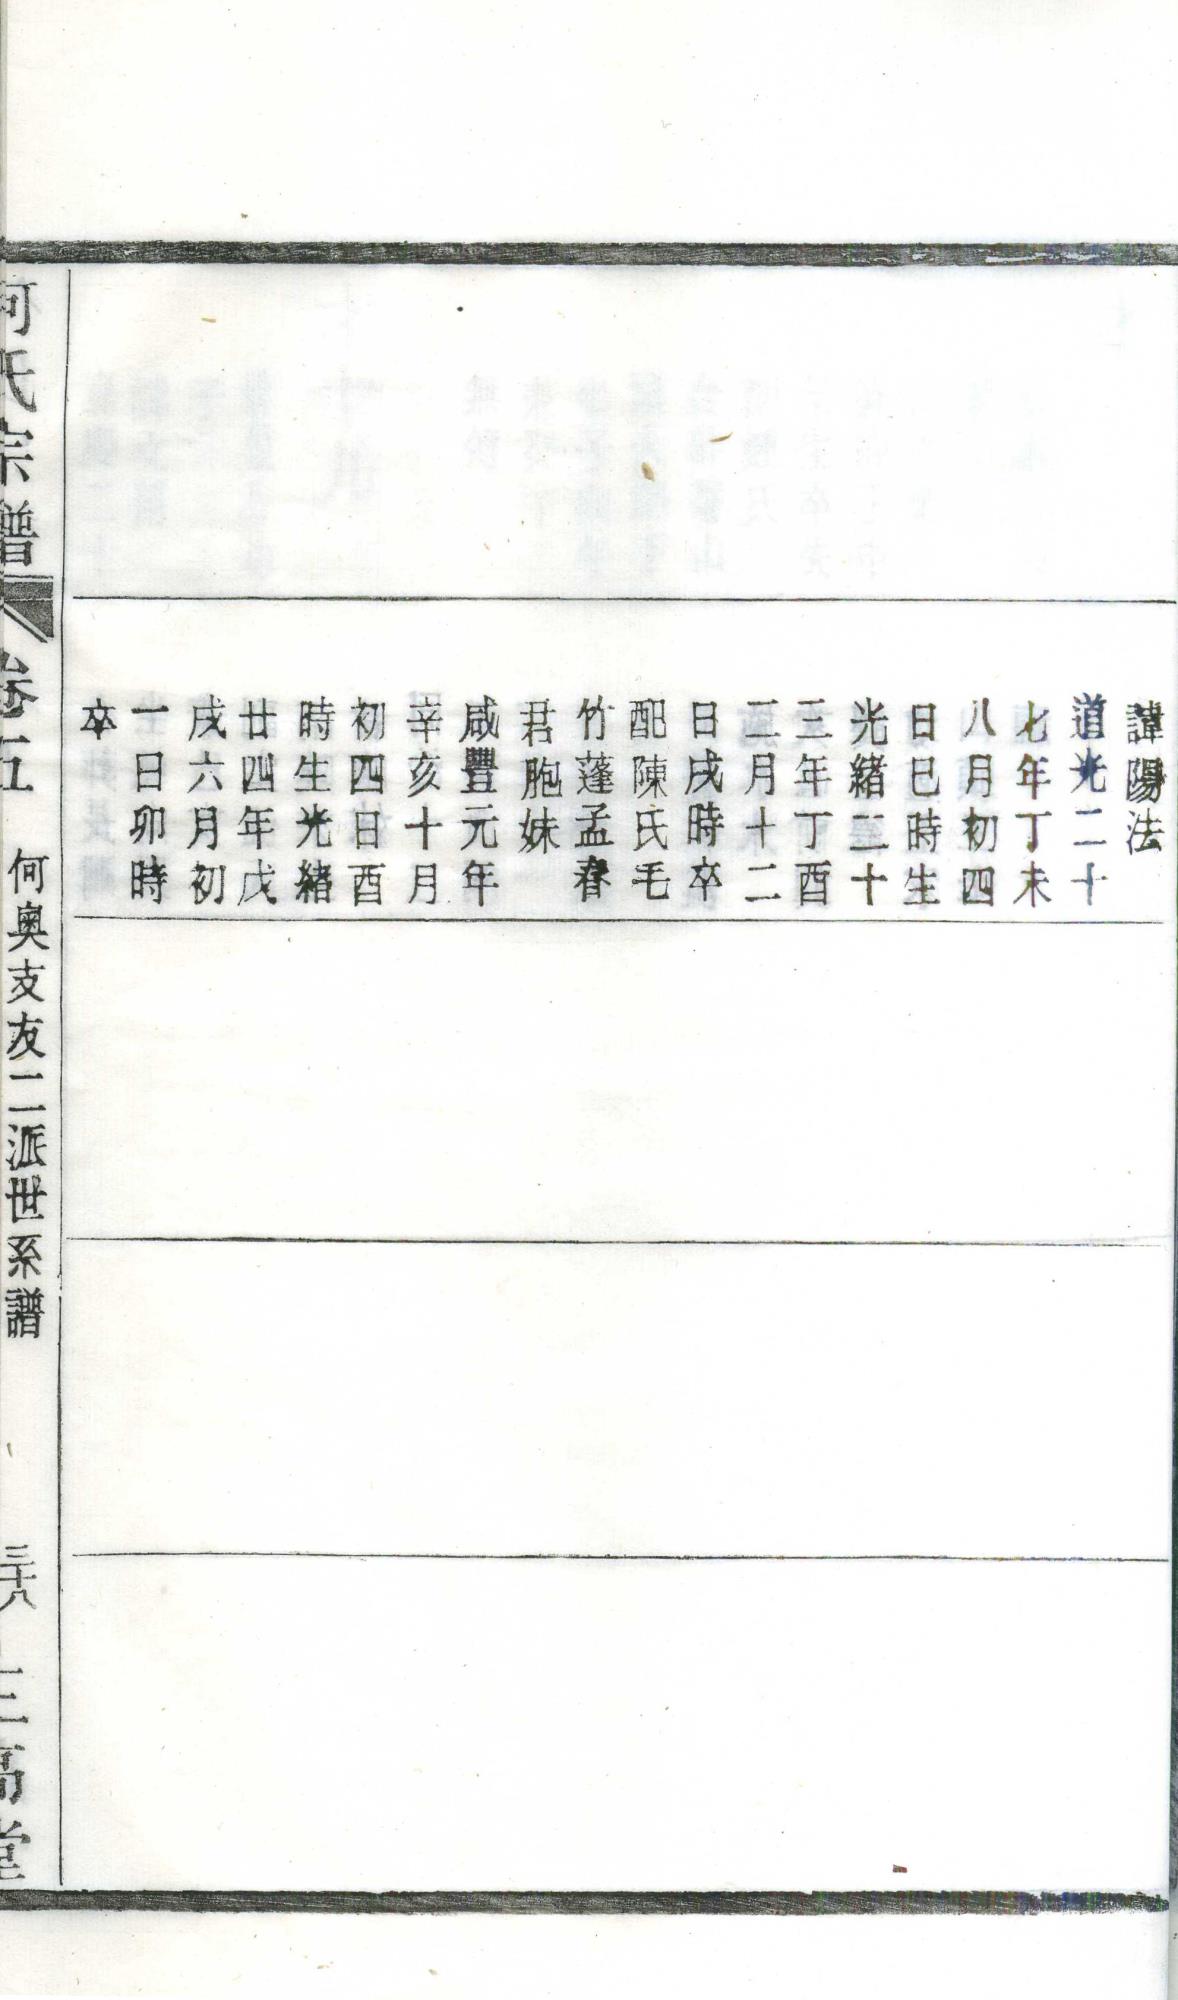 諱陽法
道光二十
七年丁未
八月初四
日巳時生
光緒二十
三年丁酉
二月十二
日戌時卒
配陳氏毛
竹蓬孟春
君胞妹
咸豐元年
辛亥十月
初四日酉
時生光緒
廿四年戊
戌六月初
一日卯時
卒
何氏宗譜
卷五
何奧支友二派世系譜
三十八
三高堂